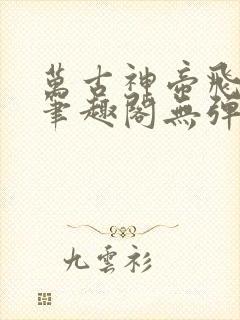 萬古神帝飛
筆趣閣無彈
九雲衫